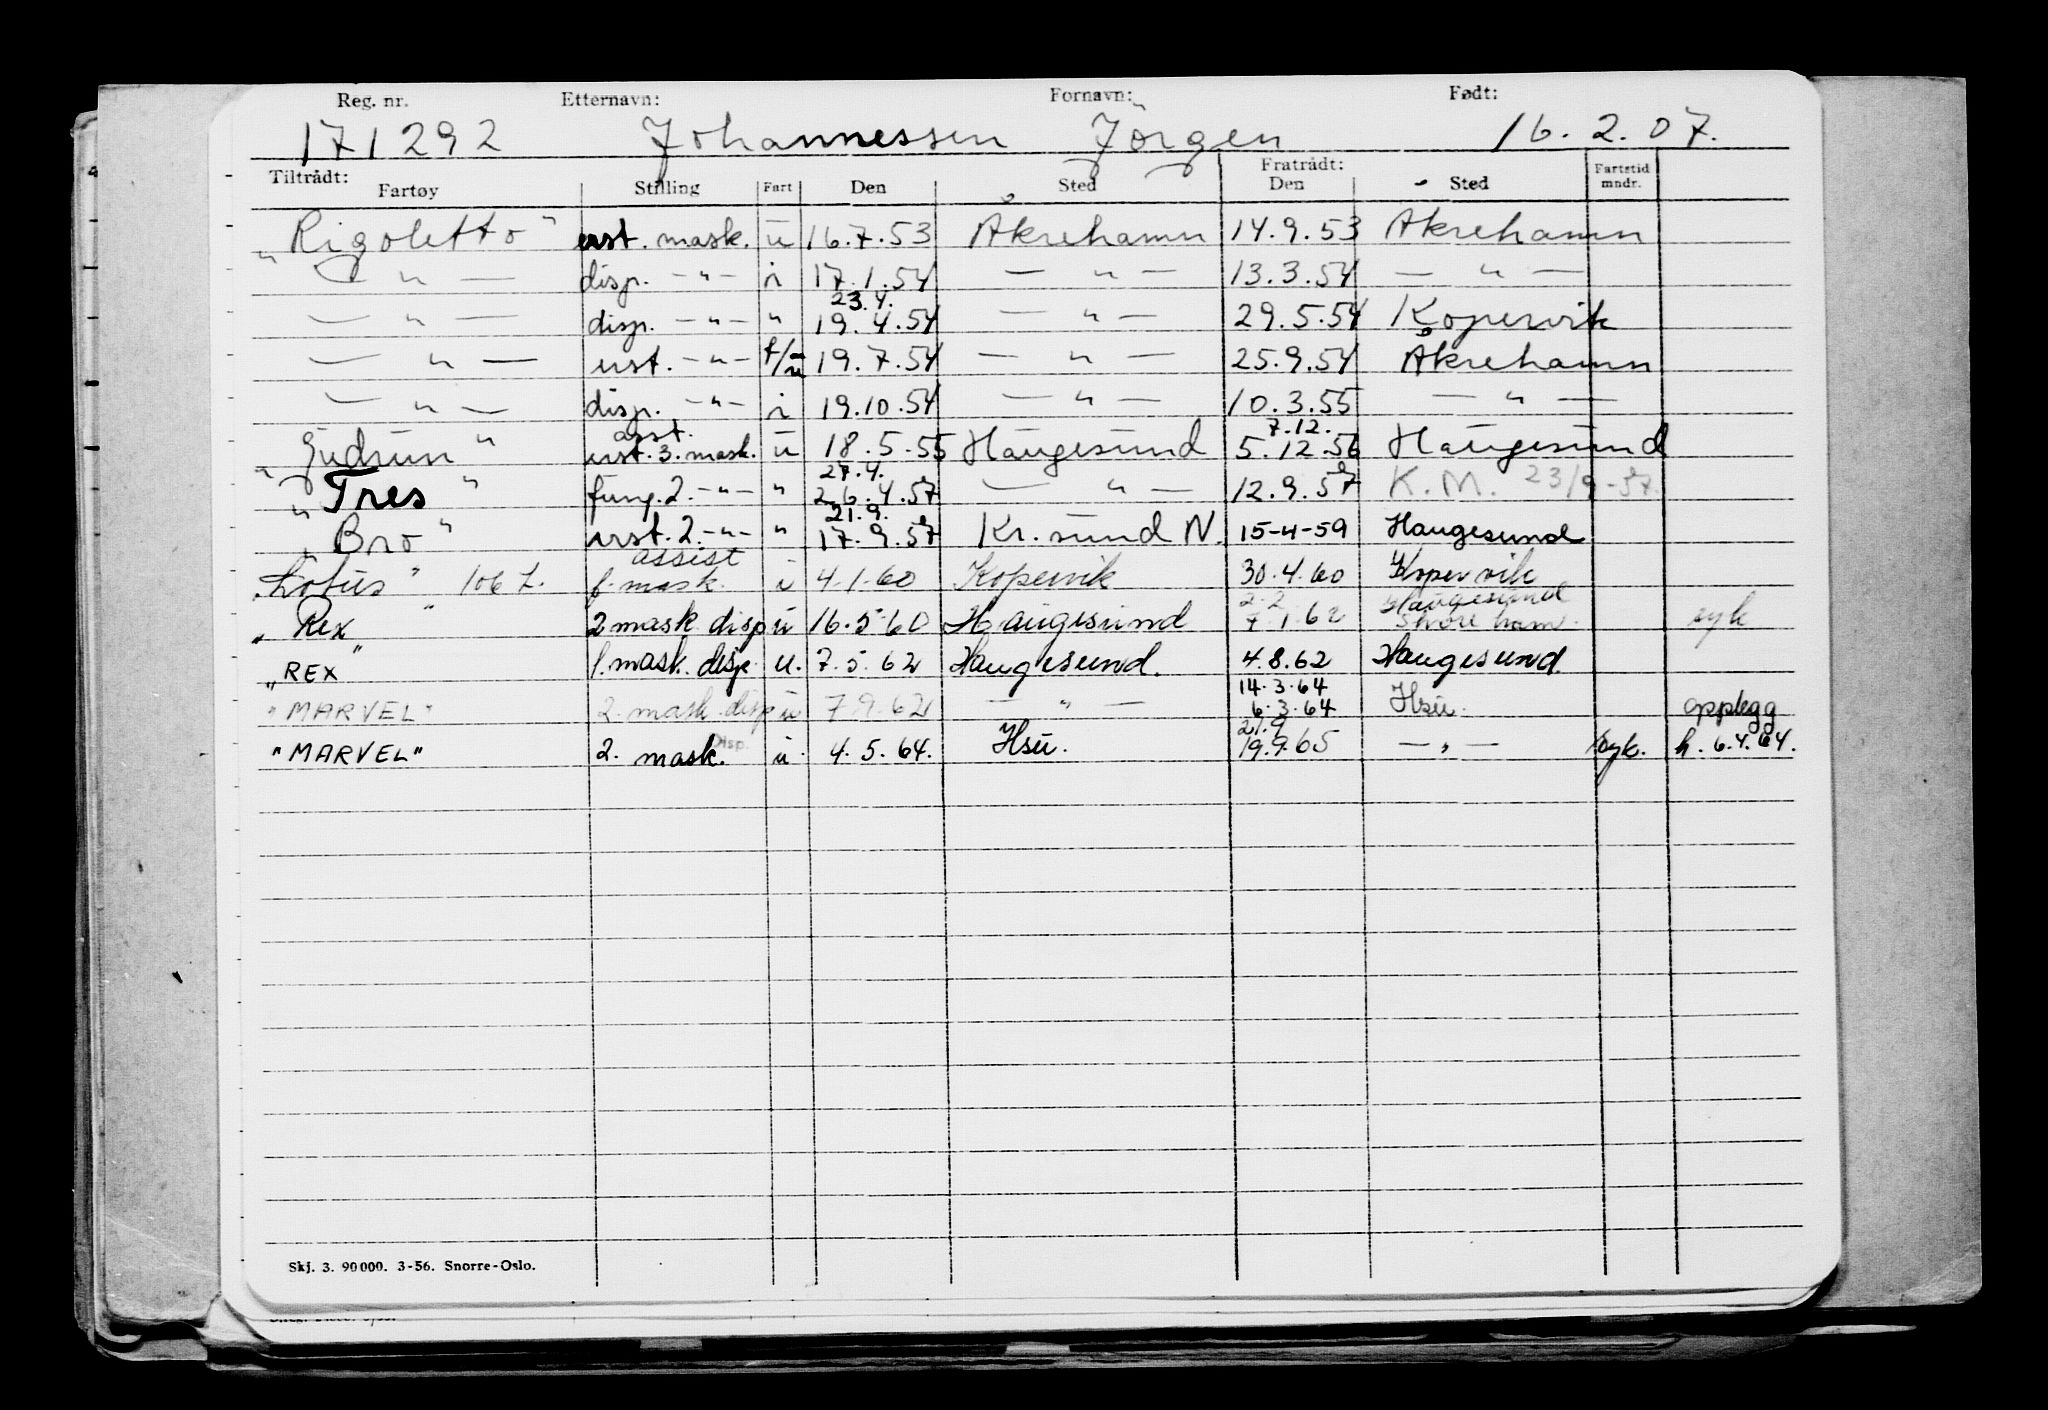 Reg. nr. Etternavn: Fornavn: Født:
171292 Johannessen Jörgen 16.2.07.
Tiltrådt: Fratrådt: Fartstid
Fartøy Stilling Fart Den Sted Den Sted mndr.
"Rigoletto" erst. mask. ū 16.7.53 Åkrehamn 14.9.53 Åkrehamn
— " — disp. —"— i 17.1.54 — " — 13.3.54 — " —
23.4.
— " — disp. —"— " 19.4.54 — " — 29.5.54 Kopervik
— " — erst. —"— f/ū 19.7.54 — " — 25.9.54 Åkrehamn
— " — disp. —"— i 19.10.54 — " — 10.3.55 — " —
asst. 7.12.
"Gudrun" erst. 3. mask. ū 18.5.55 Haugesund 5.12.56 Haugesund
27.4.
"Tres" fung. 2. —"— " 26.4.57 — " — 12.9.57 K.M. 23/9-57.
21.9.
"Bro" erst. 2. —"— " 17.9.57 Kr.sund N. 15-4-59 Haugesund
assist
"Lotus" 106 L. f. mask. u 4.1.60 Kopervik 30.4.60 Kopervik
2.2. Haugesund
"Rex" 2 mask disp u 16.5.60 Haugesund 7.1.62 syk
"REX" 1. mask. disp. u. 7.5.62 Haugesund. 4.8.62 Haugesund.
14.3.64
"MARVEL" 2. mask. disp u 7.9.62 — " — 6.3.64 Hsu. opplegg
Disp. 21.9
"MARVEL" 2. mask. u. 4.5.64. Hsu. 19.9.65 — " — syk. h. 6.4.64.
Skj. 3. 90000. 3-56. Snorre-Oslo.